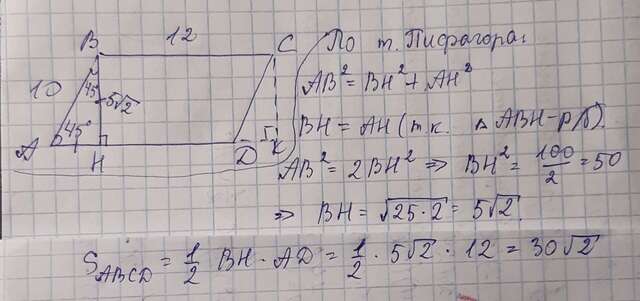 B 12 C
10 45° 5√2
A 45° H D K
По т. Пифагора:
AB² = BH² + AH²
BH = AH (т.к. △ ABH - р/б).
AB² = 2BH² => BH² = 100/2 = 50
=> BH = √25·2 = 5√2.
S ABCD = 1/2 BH · AD = 1/2 · 5√2 · 12 = 30√2